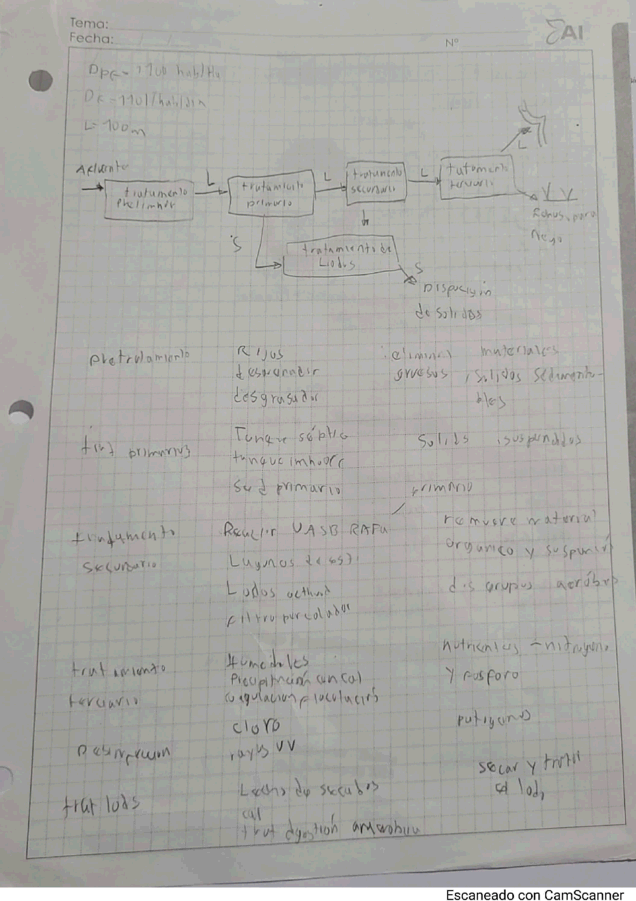 Tema:
Fecha:
Nº
ΣAI
L = 100m
Afluente
L
L
L
L
tratamiento
preliminar
tratamiento
primario
tratamiento
secundario
tratamiento
terciario
S
tratamiento de
Lodos
S
Disposición
de solidos
riego
pretratamiento
Rejas
desarenador
desgrasador
eliminar materiales
gruesos, solidos sedimenta-
bles
trat primarios
Tanque séptico
tanque imhoff
sed primario
Solidos suspendidos
primario
tratamiento
secundario
Reactor UASB RAFA
Lagunas de
Lodos
filtro percolador
remueve material
organico y
dis grupos
tratamiento
terciario
Humedales
Precipitación con cal
coagulacion floculación
nutrientes - nitrogeno
y fosforo
Desinfección
cloro
rayos UV
patogenos
trat lods
Lecho de secados
cal
trat digestión anaerobia
secar y
Escaneado con CamScanner